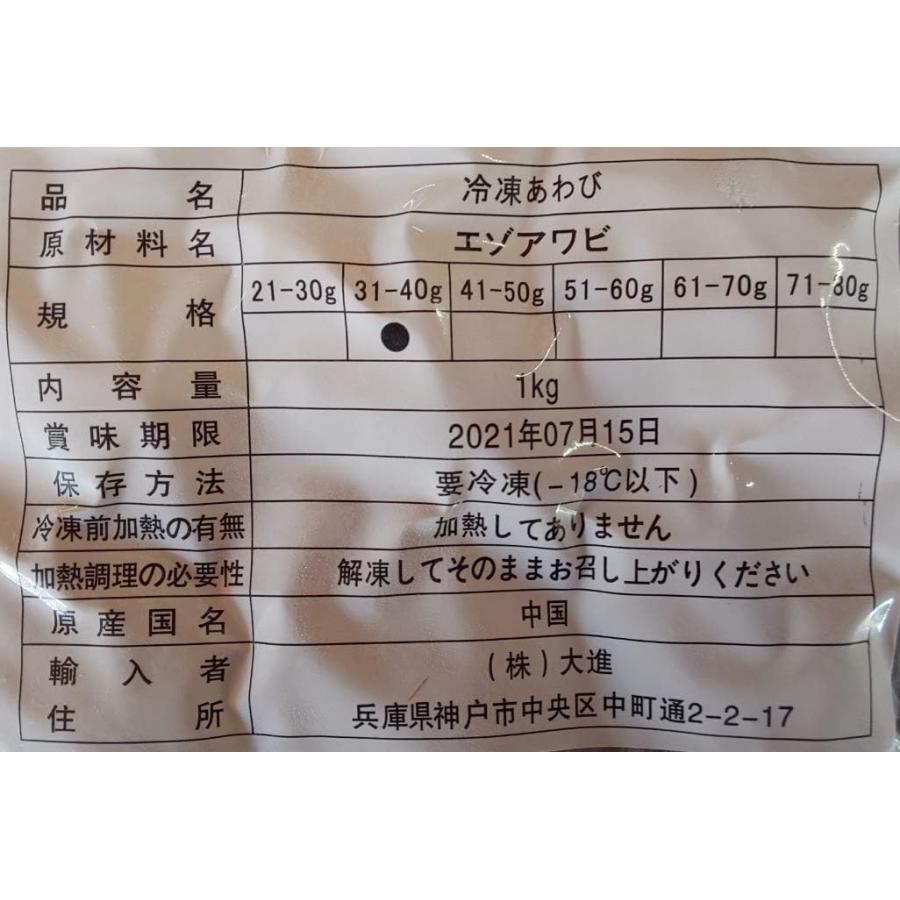 品名 冷凍あわび
原材料名 エゾアワビ
規格 21-30g 31-40g 41-50g 51-60g 61-70g 71-80g
●
内容量 1kg
賞味期限 2021年07月15日
保存方法 要冷凍(-18℃以下)
冷凍前加熱の有無 加熱してありません
加熱調理の必要性 解凍してそのままお召し上がりください
原産国名 中国
輸入者 (株)大進
住所 兵庫県神户市中央区中町通2-2-17